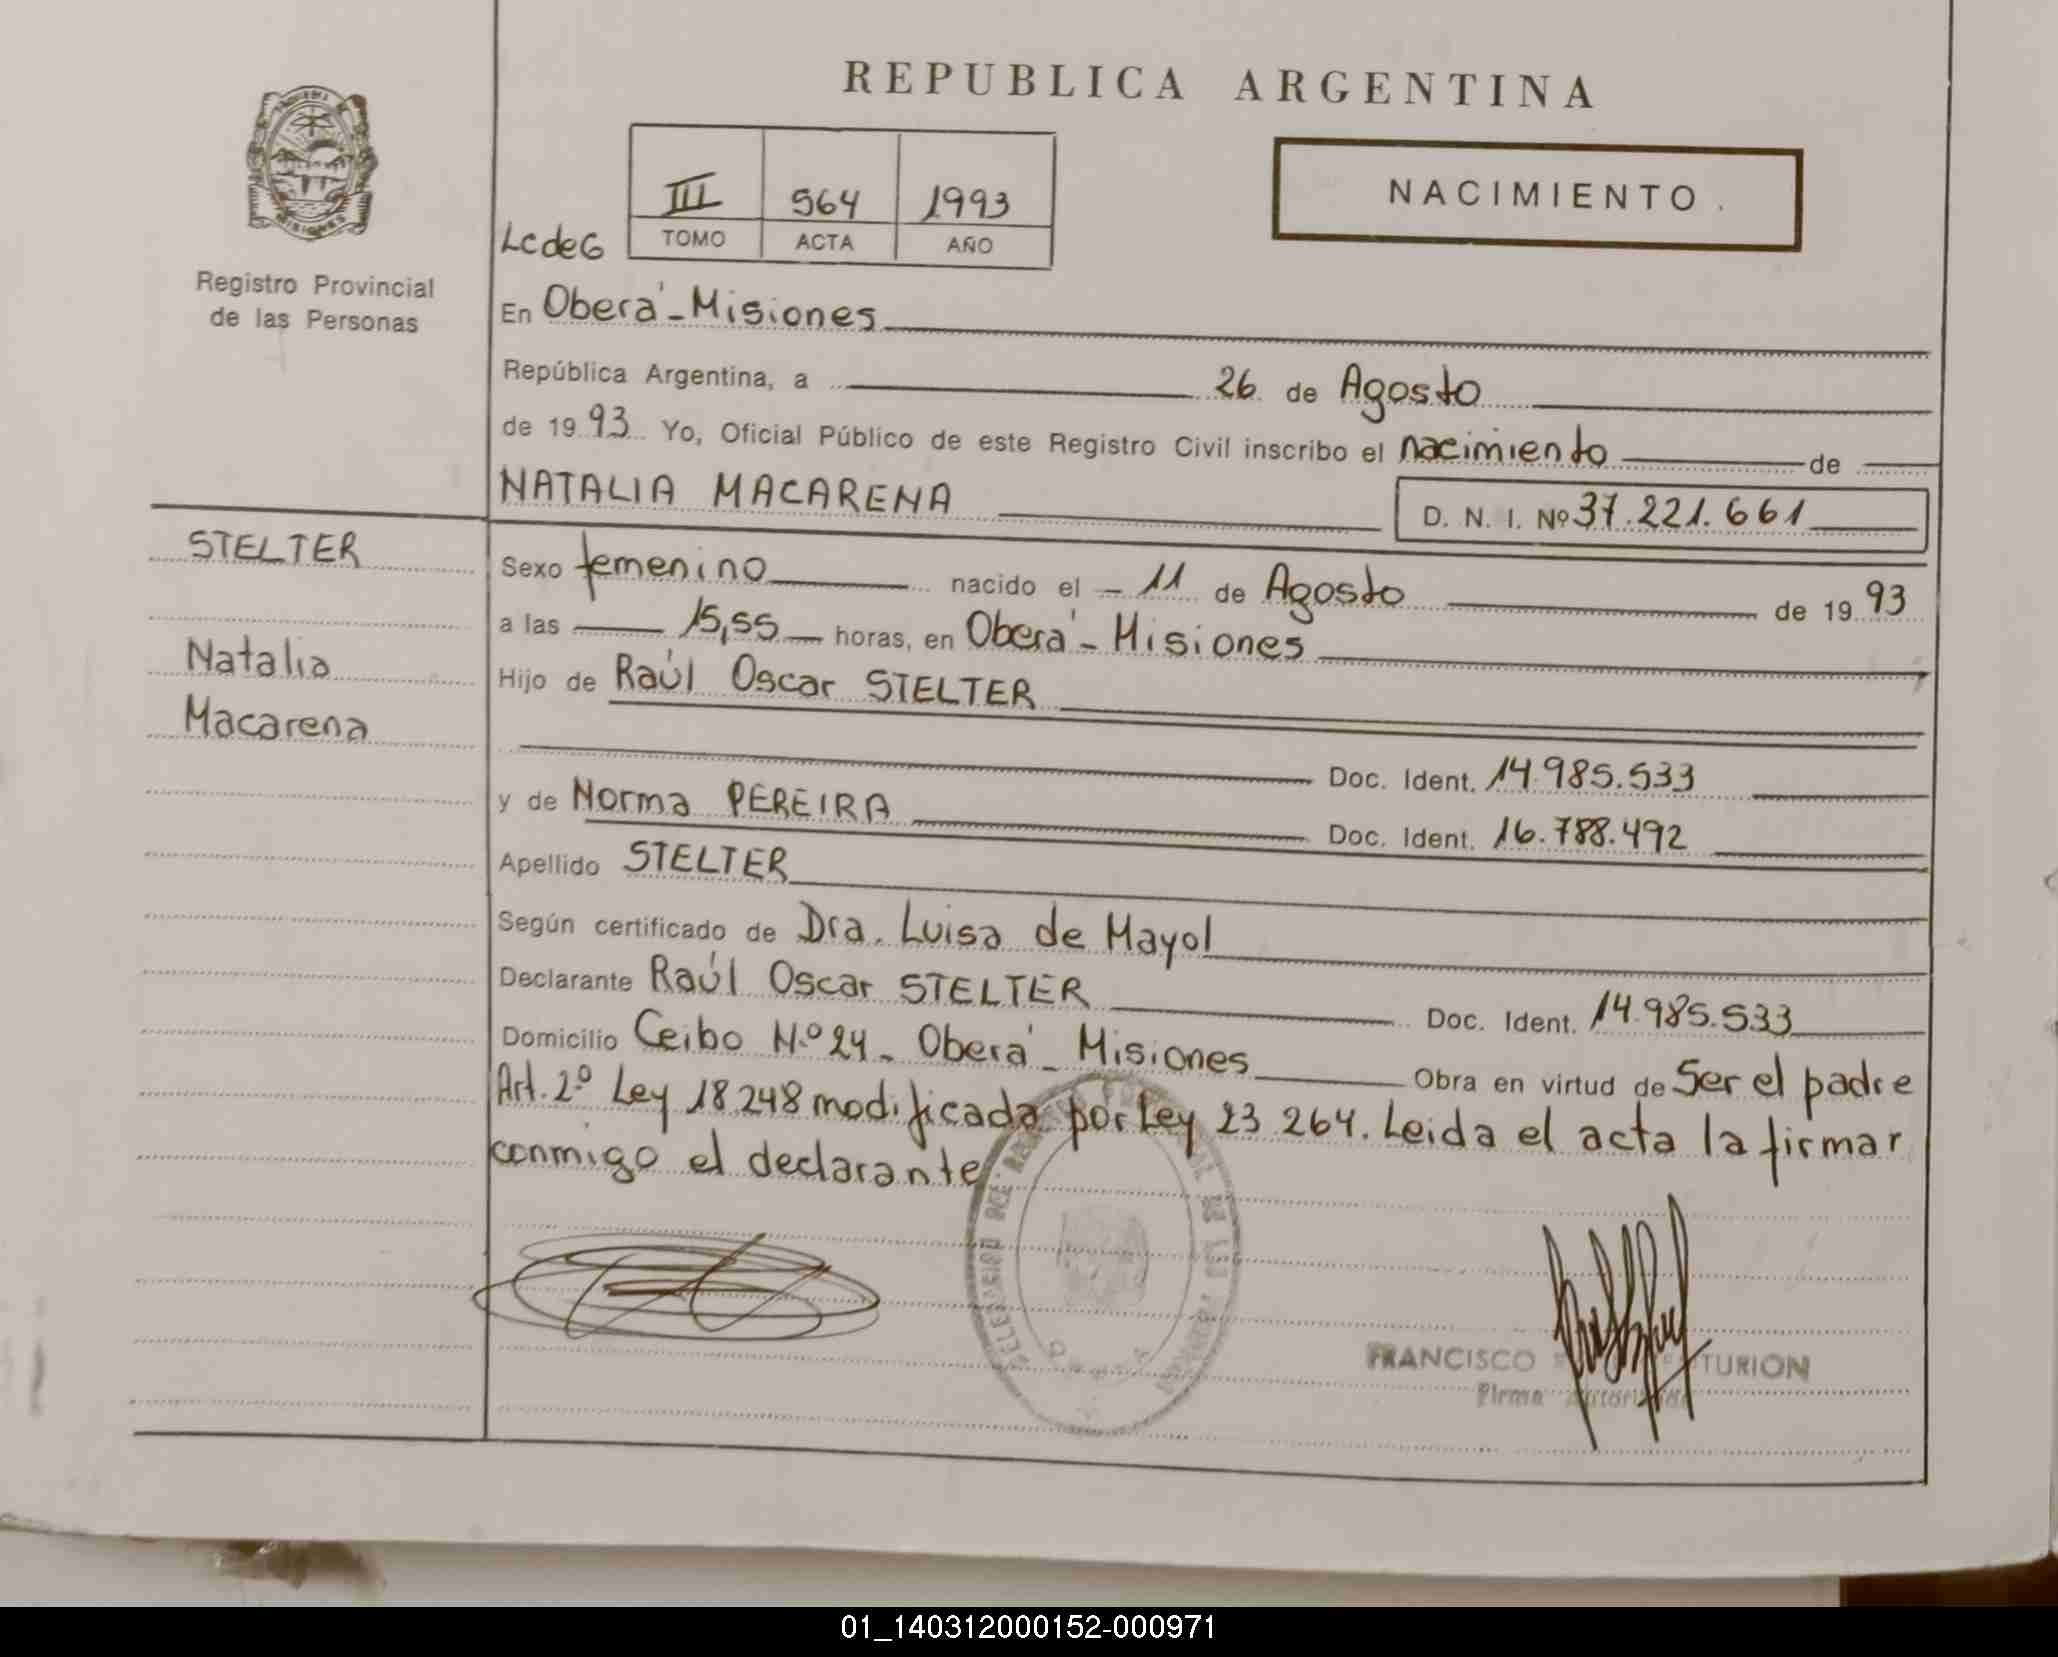 REPUBLICA ARGENTINA
NACIMIENTO
III 564 1993
TOMO ACTA AÑO
LcdeG
Registro Provincial
de las Personas
En Oberá - Misiones
República Argentina, a 26 de Agosto
de 1993 Yo, Oficial Público de este Registro Civil inscribo el nacimiento de
NATALIA MACARENA
D. N. I. Nº 37.221.661
STELTER
Natalia
Macarena
Sexo femenino nacido el - 11 de Agosto de 1993
a las 15,55 horas, en Oberá - Misiones
Hijo de Raúl Oscar STELTER
Doc. Ident. 14.985.533
y de Norma PEREIRA Doc. Ident. 16.788.492
Apellido STELTER
Según certificado de Dra. Luisa de Mayol
Declarante Raúl Oscar STELTER Doc. Ident. 14.985.533
Domicilio Ceibo N.º 24 - Oberá - Misiones Obra en virtud de Ser el padre
Art. 2º Ley 18.248 modificada por Ley 23.264. Leida el acta la firmar
conmigo el declarante
FRANCISCO TURION
Firma Autorizada
01_140312000152-000971